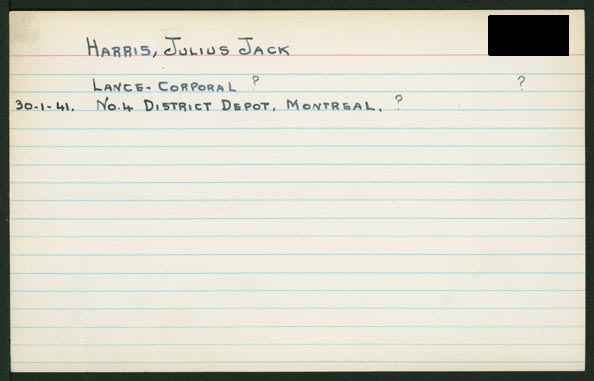 HARRIS, JULIUS JACK
LANCE-CORPORAL ? ?
30-1-41. No.4 DISTRICT DEPOT, MONTREAL. ?